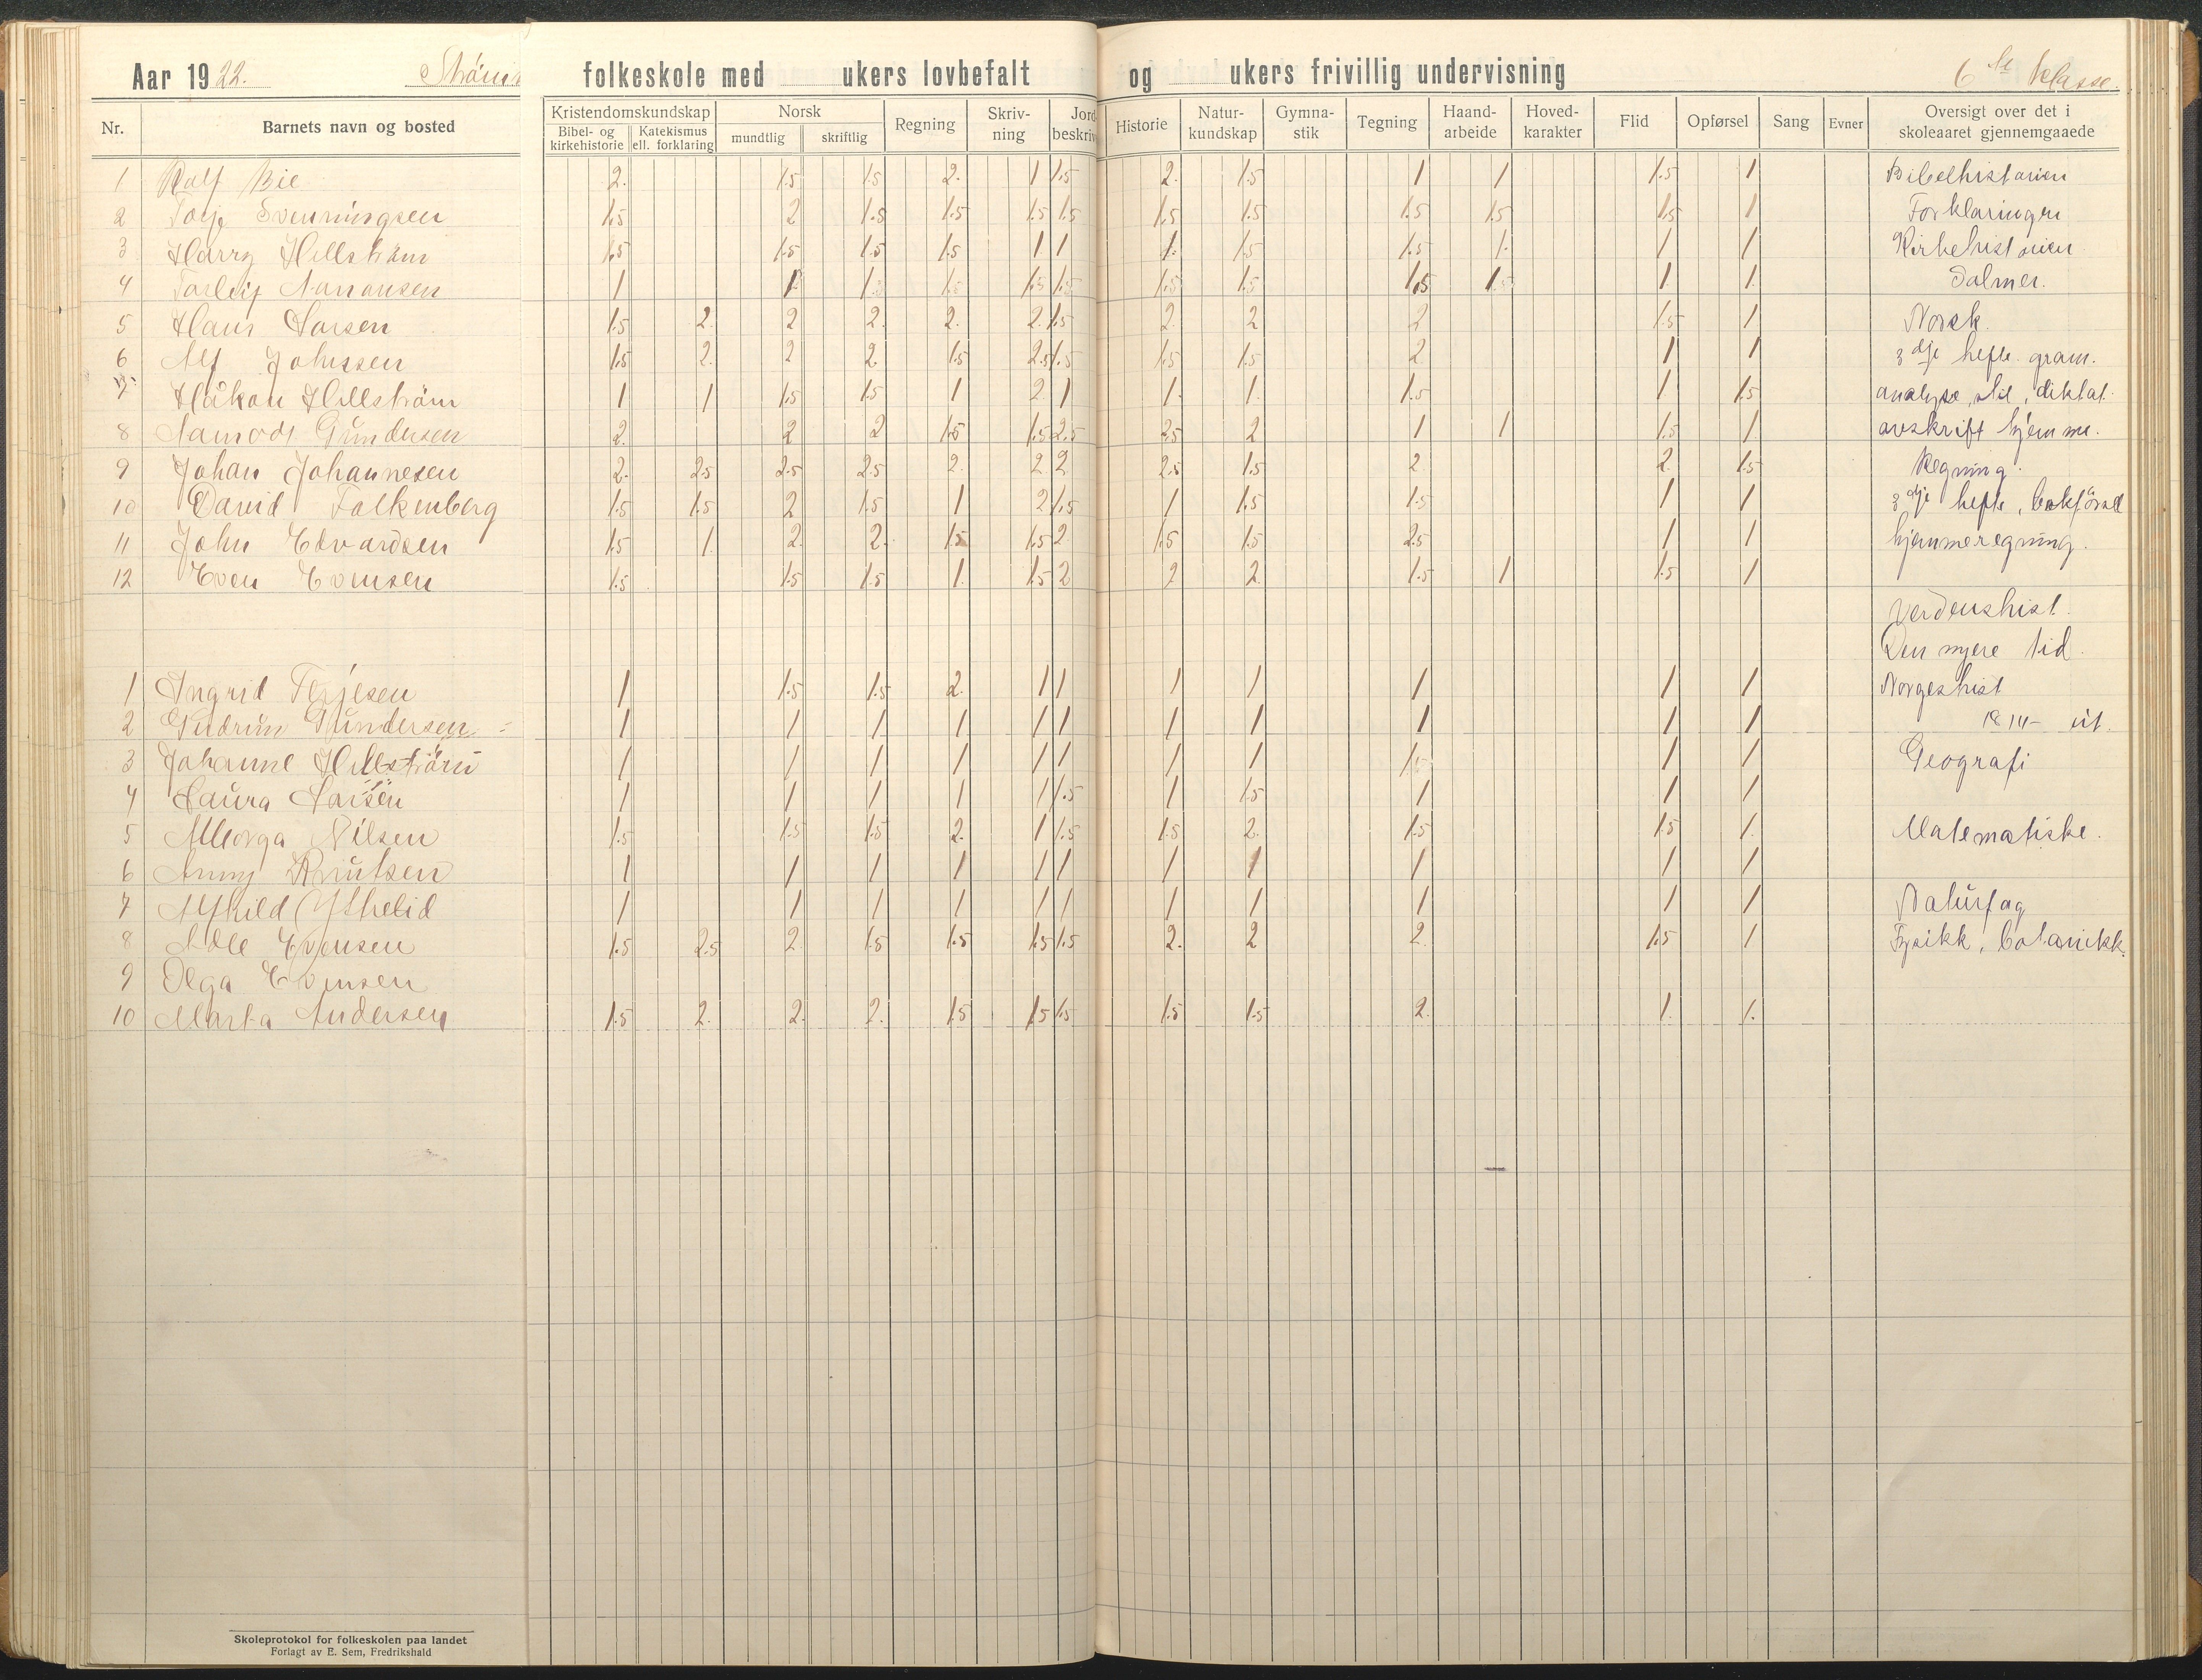 Aar 1922. folkeskole med ukers lovbefalt og ukers frivillig undervisning 6te klasse.
Nr. Barnets navn og bosted Kristendomskundskap Norsk Regning Skriv-ning Jord beskriv Historie Natur-kundskap Gymna-stik Tegning Haand-arbeide Hoved-karakter Flid Opførsel Sang Evner Oversigt over det i skoleaaret gjennemgaaede
Bibel- og kirkehistorie Katekismus ell. forklaring mundtlig skriftlig
1 Rolf Bie 2. 1.5 1.5 2. 1 1.5 2. 1.5 1 1 1.5 1 Bibelhistorien
2 Torje Svenningsen 1.5 2 1.5 1.5 1.5 1.5 1.5 1.5 1.5 1.5 1.5 1 Forklaringen
3 Harry Hellström 1.5 1.5 1.5 1.5 1 1 1. 1.5 1.5 1. 1 1 Kirkehistorien
4 Torleif 1 1 1. 1.5 1.5 1.5 1.5 1.5 1.5 1.5 1. 1. Salmer.
5 Hans Larsen 1.5 2. 2 2. 2. 2. 1.5 2. 2 2 1.5 1 Norsk.
6 Alf Johnsen 1.5 2. 2 2. 1.5 2.5 1.5 1.5 1.5 2 1 1 3dje hefte. gram.
7 Håkon Hellström 1 1 1.5 1.5 1 2. 1 1. 1. 1.5 1 1.5 analyse, stil, diktat.
8 Gundersen 2. 2 2 1.5 1.5 2.5 2.5 2 1 1 1.5 1. avskrift hjemme.
9 Johan Johannesen 2. 2.5 2.5 2.5 2. 2. 2 2.5 1.5 2. 2. 1.5 Regning.
10 David Falkenberg 1.5 1.5 2 1.5 1 2 1.5 1 1.5 1.5 1 1 3dje hefte, bokförsel
11 John Edvardsen 1.5 1. 2. 2. 1.5 1.5 2. 1.5 1.5 2.5 1 1 hjemmeregning.
12 Even Evensen 1.5 1.5 1.5 1. 1.5 2 2 2. 1.5 1 1.5 1
Verdenshist.
Den nyere tid.
1 Ingrid Terjesen 1 1.5 1.5 2. 1 1 1 1 1 1 1 Norgeshist
2 Gudrun Gundersen 1 1 1 1 1 1 1 1 1 1 1 1814 - ut.
3 Johanne Hellström 1 1 1 1 1 1 1 1 1.5 1 1 Geografi
4 Laura Larsen 1 1 1 1 1 1.5 1 1.5 1 1 1
5 Nilsen 1.5 1.5 1.5 2. 1 1.5 1.5 2. 1.5 1.5 1. Matematiske.
6 Anny Knutsen 1 1 1 1 1 1 1 1 1 1 1
7 Alfhild 1 1 1 1 1 1 1 1 1 1 1 Naturfag
8 Evensen 1.5 2.5 2. 1.5 1.5 1.5 1.5 2. 2 2. 1.5 1 Fysikk, botanikk.
9 Olga Evensen
10 Marta Andersen 1.5 2. 2. 2. 1.5 1.5 1.5 1.5 1.5 2. 1. 1.
Skoleprotokol for folkeskolen paa landet
Forlagt av E. Sem, Fredrikshald